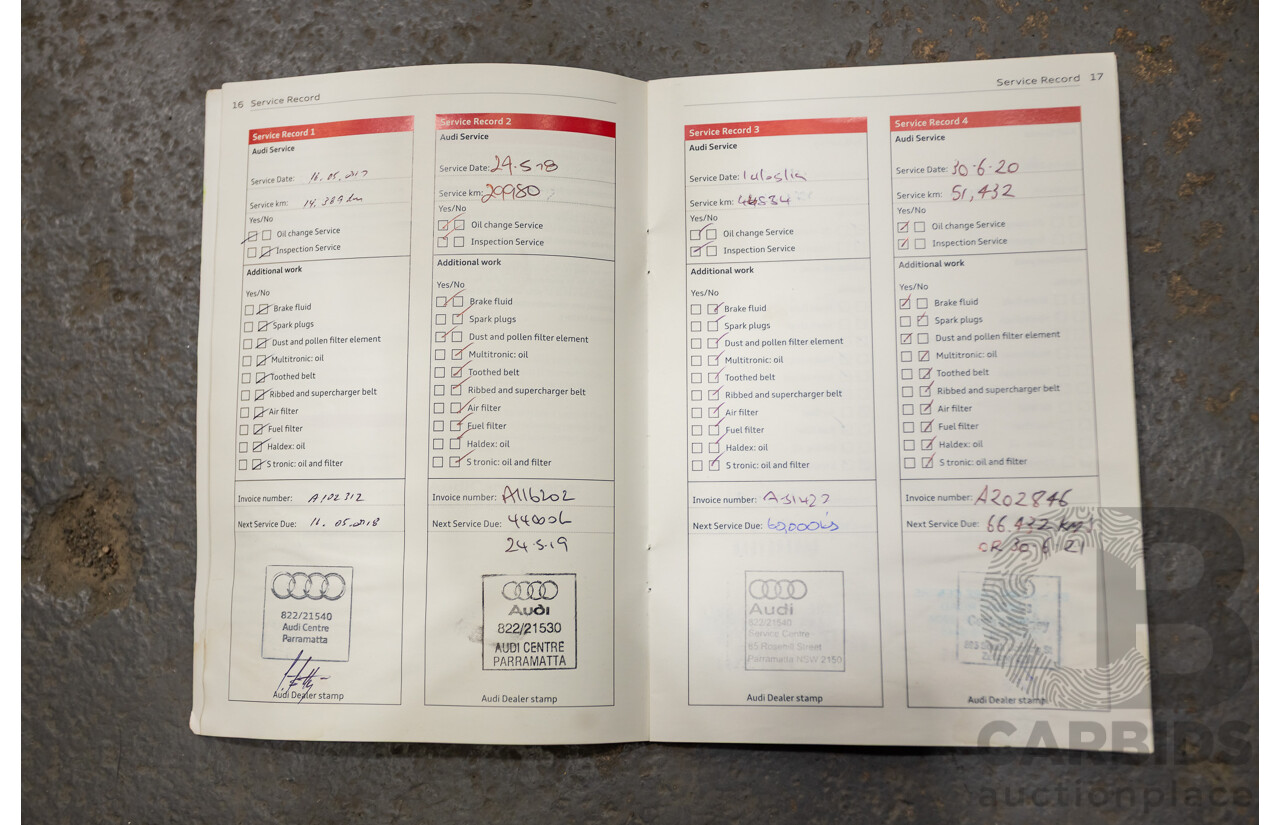 16 Service Record
Service Record 1
Audi Service
Service Date: 16.05.2017
Service km: 14,389 km
Yes/No
Oil change Service
Inspection Service
Additional work
Yes/No
Brake fluid
Spark plugs
Dust and pollen filter element
Multitronic: oil
Toothed belt
Ribbed and supercharger belt
Air filter
Fuel filter
Haldex: oil
S tronic: oil and filter
Invoice number: A102312
Next Service Due: 16.05.2018
822/21540
Audi Centre
Parramatta
Audi Dealer stamp
Service Record 2
Audi Service
Service Date: 24.5.18
Service km: 29980
Yes/No
Oil change Service
Inspection Service
Additional work
Yes/No
Brake fluid
Spark plugs
Dust and pollen filter element
Multitronic: oil
Toothed belt
Ribbed and supercharger belt
Air filter
Fuel filter
Haldex: oil
S tronic: oil and filter
Invoice number: A116202
Next Service Due:
24.5.19
Audi
822/21530
AUDI CENTRE
PARRAMATTA
Audi Dealer stamp
Service Record 17
Service Record 3
Audi Service
Service Date:
Service km: 44534
Yes/No
Oil change Service
Inspection Service
Additional work
Yes/No
Brake fluid
Spark plugs
Dust and pollen filter element
Multitronic: oil
Toothed belt
Ribbed and supercharger belt
Air filter
Fuel filter
Haldex: oil
S tronic: oil and filter
Invoice number:
Next Service Due: 60,000
Audi
822/21540
Service Centre
65 Rosehill Street
Parramatta NSW 2150
Audi Dealer stamp
Service Record 4
Audi Service
Service Date: 30-6-20
Service km: 51,432
Yes/No
Oil change Service
Inspection Service
Additional work
Yes/No
Brake fluid
Spark plugs
Dust and pollen filter element
Multitronic: oil
Toothed belt
Ribbed and supercharger belt
Air filter
Fuel filter
Haldex: oil
S tronic: oil and filter
Invoice number: A202846
Next Service Due: 66.432 km/
OR 30/6/21
Audi Dealer stamp
CARBIDS
auctionplace